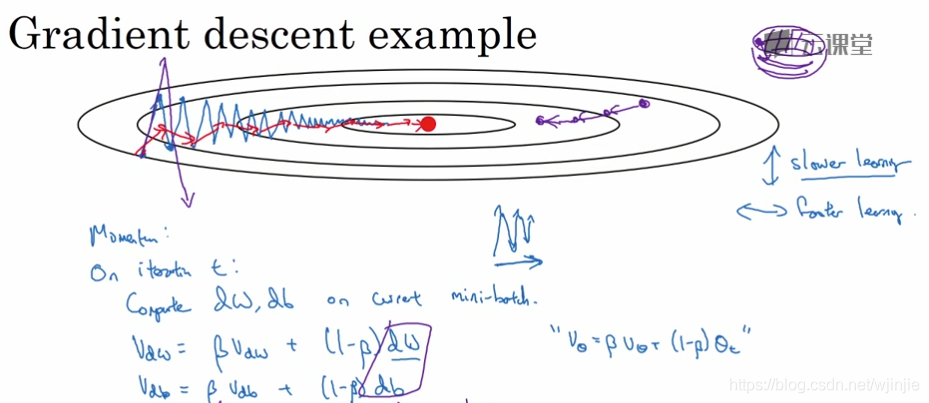 Gradient descent example
云课堂
slower learning
faster learning.
Momentum:
On iteration t:
Compute dW, db on current mini-batch.
Vdw = βVdw + (1-β)dW
"Vθ = βVθ + (1-β)θt"
Vdb = βVdb + (1-β)db
https://blog.csdn.net/wjinjie